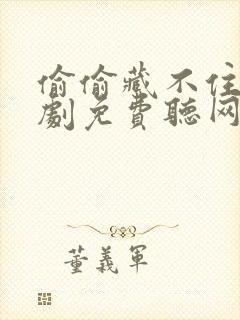 偷偷藏不住
劇免費聽网
董義軍